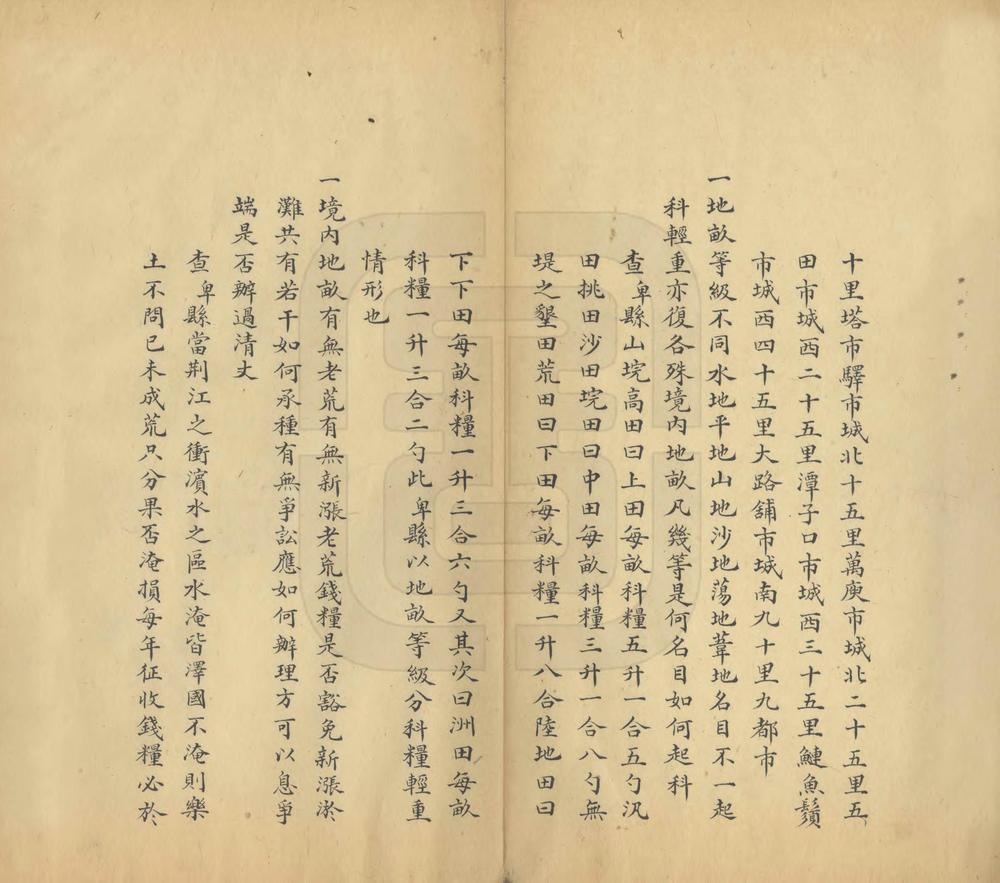 十里塔市驛市城北十五里萬庾市城北二十五里五
田市城西二十五里潭子口市城西三十五里鰱魚鬚
市城西四十五里大路舖市城南九十里九都市
一地畝等級不同水地平地山地沙地蕩地葦地名目不一起
科輕重亦復各殊境內地畝凡幾等是何名目如何起科
查卑縣山垸高田曰上田每畝科糧五升一合五勺汎
田挑田沙田垸田曰中田每畝科糧三升一合八勺無
堤之墾田荒田曰下田每畝科糧一升八合陸地田曰
下下田每畝科糧一升三合六勺又其次曰洲田每畝
科糧一升三合二勺此卑縣以地畝等級分科糧輕重
情形也
一境內地畝有無老荒有無新漲老荒錢糧是否豁免新漲淤
灘共有若干如何承種有無爭訟應如何辦理方可以息爭
端是否辦過清丈
查卑縣當荆江之衝濱水之區水淹皆澤國不淹則樂
土不問已未成荒只分果否淹損每年征收錢糧必於